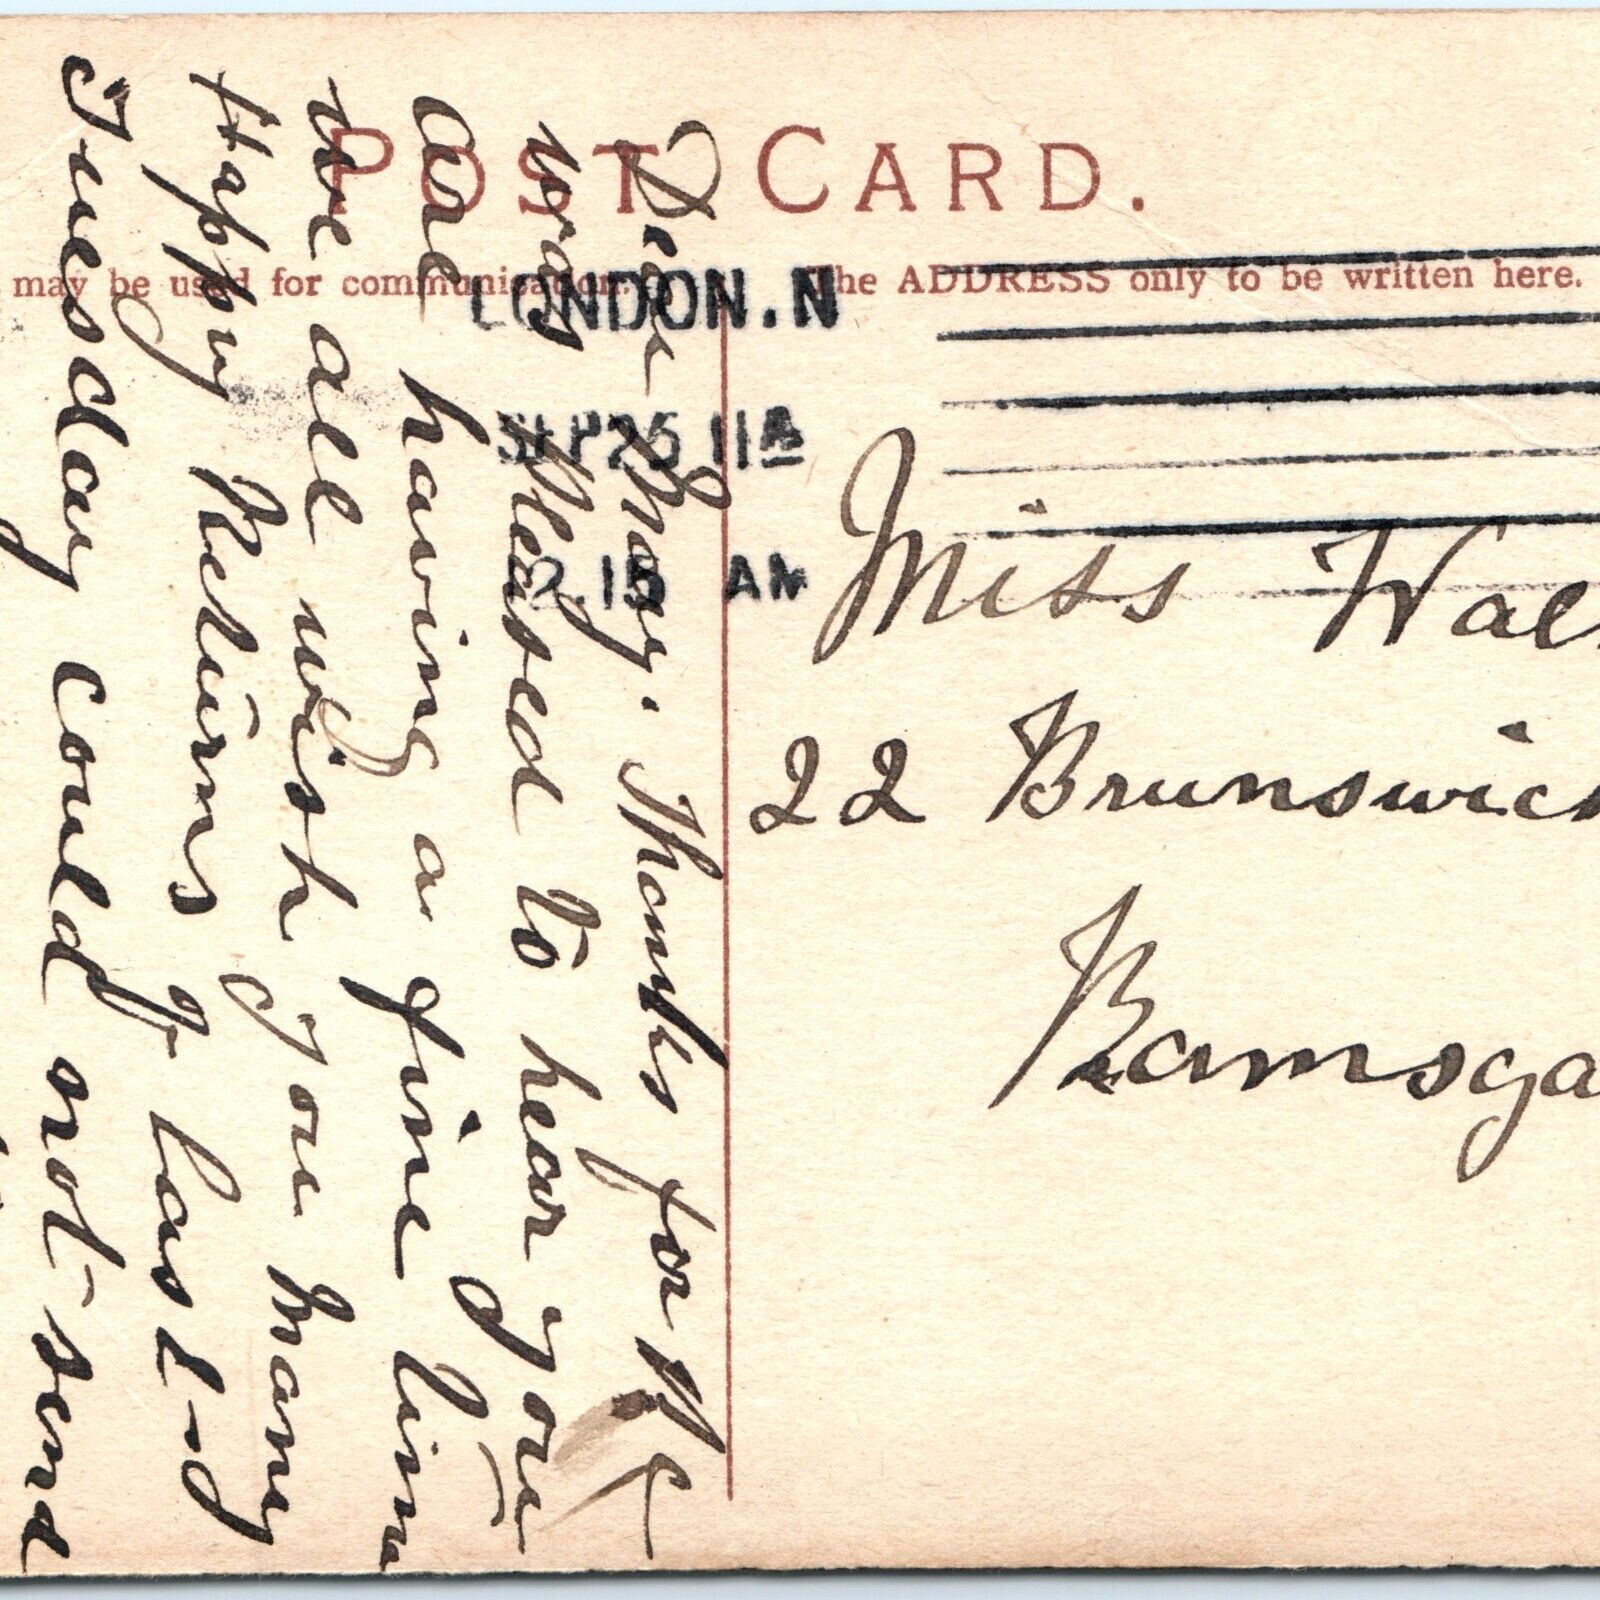 POST CARD.
may be used for communication.
The ADDRESS only to be written here.
LONDON. N
SEP 25 11A
12.15 AM
Dear May. Thanks for P.C
was pleased to hear you
are having a fine time
we all wish you many
Happy Returns of last
Tuesday could not send
Miss Wal
22 Brunswick
Ramsga